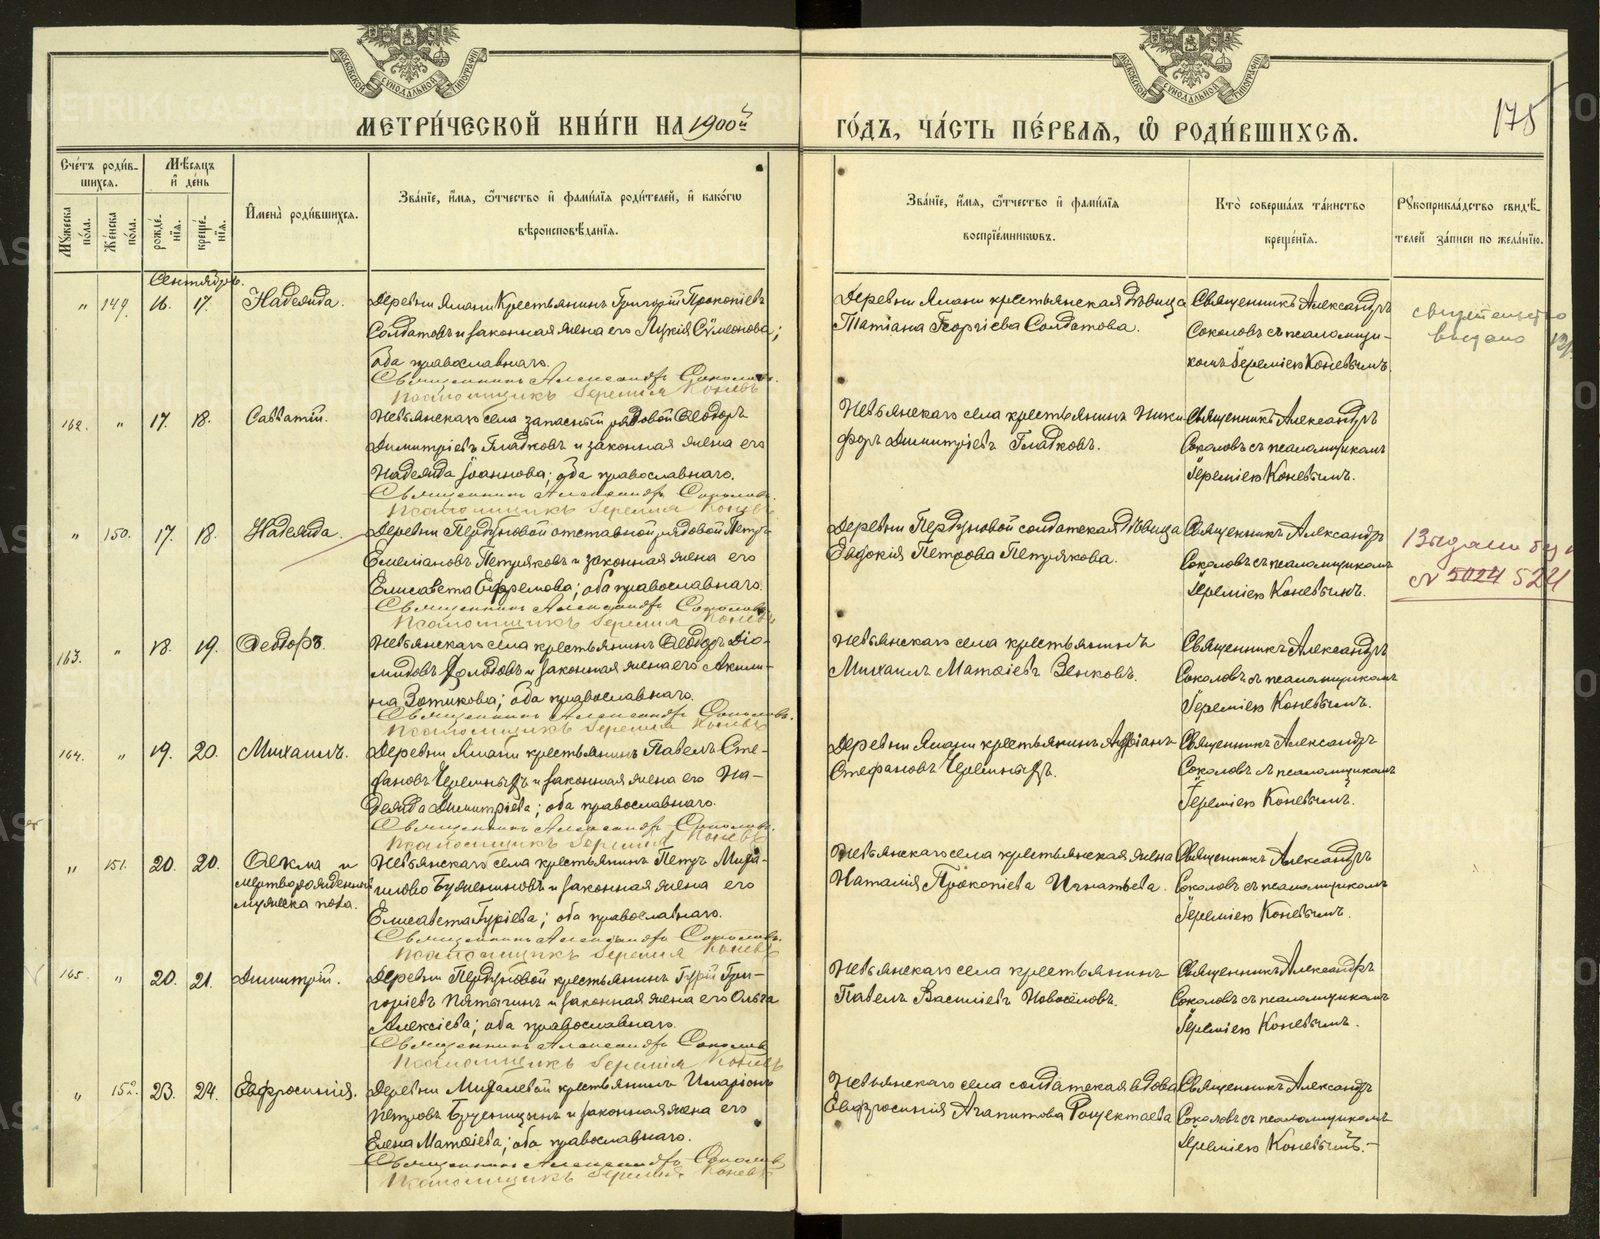 МЕТРИ́ЧЕСКОЙ КНИ́ГИ НА 1900й
ГО́ДЪ, ЧА́СТЬ ПЕ́РВАЯ, Ѽ РОДИ́ВШИХСЯ.
175
Сче́тъ роди́в-
шихся.
Мѣ́сяцъ
и҆ де́нь
Мꙋ́жеска по́ла.
Же́нска по́ла.
рожде́-
нїя.
креще́-
нїя.
И҆мена̀ роди́вшихся.
Зва́нїе, и҆́мя, ѻ҆́тчество и҆ фами́лїя роди́телей, и҆ како́гѡ
вѣроисповѣ́данїя.
Зва́нїе, и҆́мя, ѻ҆́тчество и҆ фами́лїя
воспрїе́мникѡвъ.
Кто̀ соверша́лъ та́инство
креще́нїя.
Рꙋкоприкла́дство свидѣ́-
телей за́писи по жела́нїю.
Сентябрь.
" 149. 16. 17. Надежда.
Деревни Ямани Крестьянинъ Григорій Прокопіевъ
Солдатовъ и законная жена его Лукія Сѵмеонова;
оба православнаго.
Священникъ Александръ Соколовъ.
Псаломщикъ Іеремія Коневъ
Деревни Ямани крестьянская дѣвица
Татіана Георгіева Солдатова.
Священникъ Александръ
Соколовъ съ псаломщи-
комъ Іереміею Коневымъ.
свидетельство
выдано
162. " 17. 18. Савватій.
Невьянскаго села запасный рядовой Ѳеодоръ
Димитріевъ Гладковъ и законная жена его
Надежда Іоаннова; оба православнаго.
Священникъ Александръ Соколовъ.
Псаломщикъ Іеремія Коневъ
Невьянскаго села крестьянинъ Ники-
форъ Димитріевъ Гладковъ.
Священникъ Александръ
Соколовъ съ псаломщикомъ
Іереміею Коневымъ.
" 150. 17. 18. Надежда.
Деревни Пердуновой отставной рядовой Петръ
Емеліановъ Петряковъ и законная жена его
Елисавета Ефремова; оба православнаго.
Священникъ Александръ Соколовъ
Псаломщикъ Іеремія Коневъ
Деревни Пердуновой солдатская дѣвица
Евдокія Петрова Петрякова.
Священникъ Александръ
Соколовъ съ псаломщикомъ
Іереміею Коневымъ.
№ 5024 524
163. " 18. 19. Ѳеодоръ.
Невьянскаго села крестьянинъ Ѳеодоръ Діо-
мидовъ и законная жена его Акили-
на Зотикова; оба православнаго.
Священникъ Александръ Соколовъ.
Псаломщикъ Іеремія Коневъ
Невьянскаго села крестьянинъ
Михаилъ Матѳіевъ Зенковъ.
Священникъ Александръ
Соколовъ съ псаломщикомъ
Іереміею Коневымъ.
164. " 19. 20. Михаилъ.
Деревни Ямани крестьянинъ Павелъ Сте-
фановъ Черемныхъ и законная жена его На-
дежда Димитріева; оба православнаго.
Священникъ Александръ Соколовъ.
Псаломщикъ Іеремія Коневъ
Деревни Ямани крестьянинъ Андріанъ
Стефановъ Черемныхъ.
Священникъ Александръ
Соколовъ съ псаломщикомъ
Іереміею Коневымъ.
" 151. 20. 20. Ѳекла и
мертворожденный
мужеска пола.
Невьянскаго села крестьянинъ Петръ Миха-
илово Буженниновъ и законная жена его
Елисавета Гуріева; оба православнаго.
Священникъ Александръ Соколовъ.
Псаломщикъ Іеремія Коневъ
Невьянскаго села крестьянская жена
Наталія Прокопіева Игнатьева.
Священникъ Александръ
Соколовъ съ псаломщикомъ
Іереміею Коневымъ.
165. " 20. 21. Димитрій.
Деревни Пердуновой крестьянинъ Гурій Гри-
горіевъ Пятыгинъ и законная жена его Ольга
Алексіева; оба православнаго.
Священникъ Александръ Соколовъ
Псаломщикъ Іеремія Коневъ
Невьянскаго села крестьянинъ
Павелъ Василіевъ Новосёловъ.
Священникъ Александръ
Соколовъ съ псаломщикомъ
Іереміею Коневымъ.
" 152. 23. 24. Евфросинія.
Деревни Михалевой крестьянинъ Иларіонъ
Петровъ и законная жена его
Елена Матѳіева; оба православнаго.
Священникъ Александръ Соколовъ
Псаломщикъ Іеремія Коневъ
Невьянскаго села солдатская вдова
Евфросинія Агапитова Рощектаева
Священникъ Александръ
Соколовъ съ псаломщикомъ
Іереміею Коневымъ.